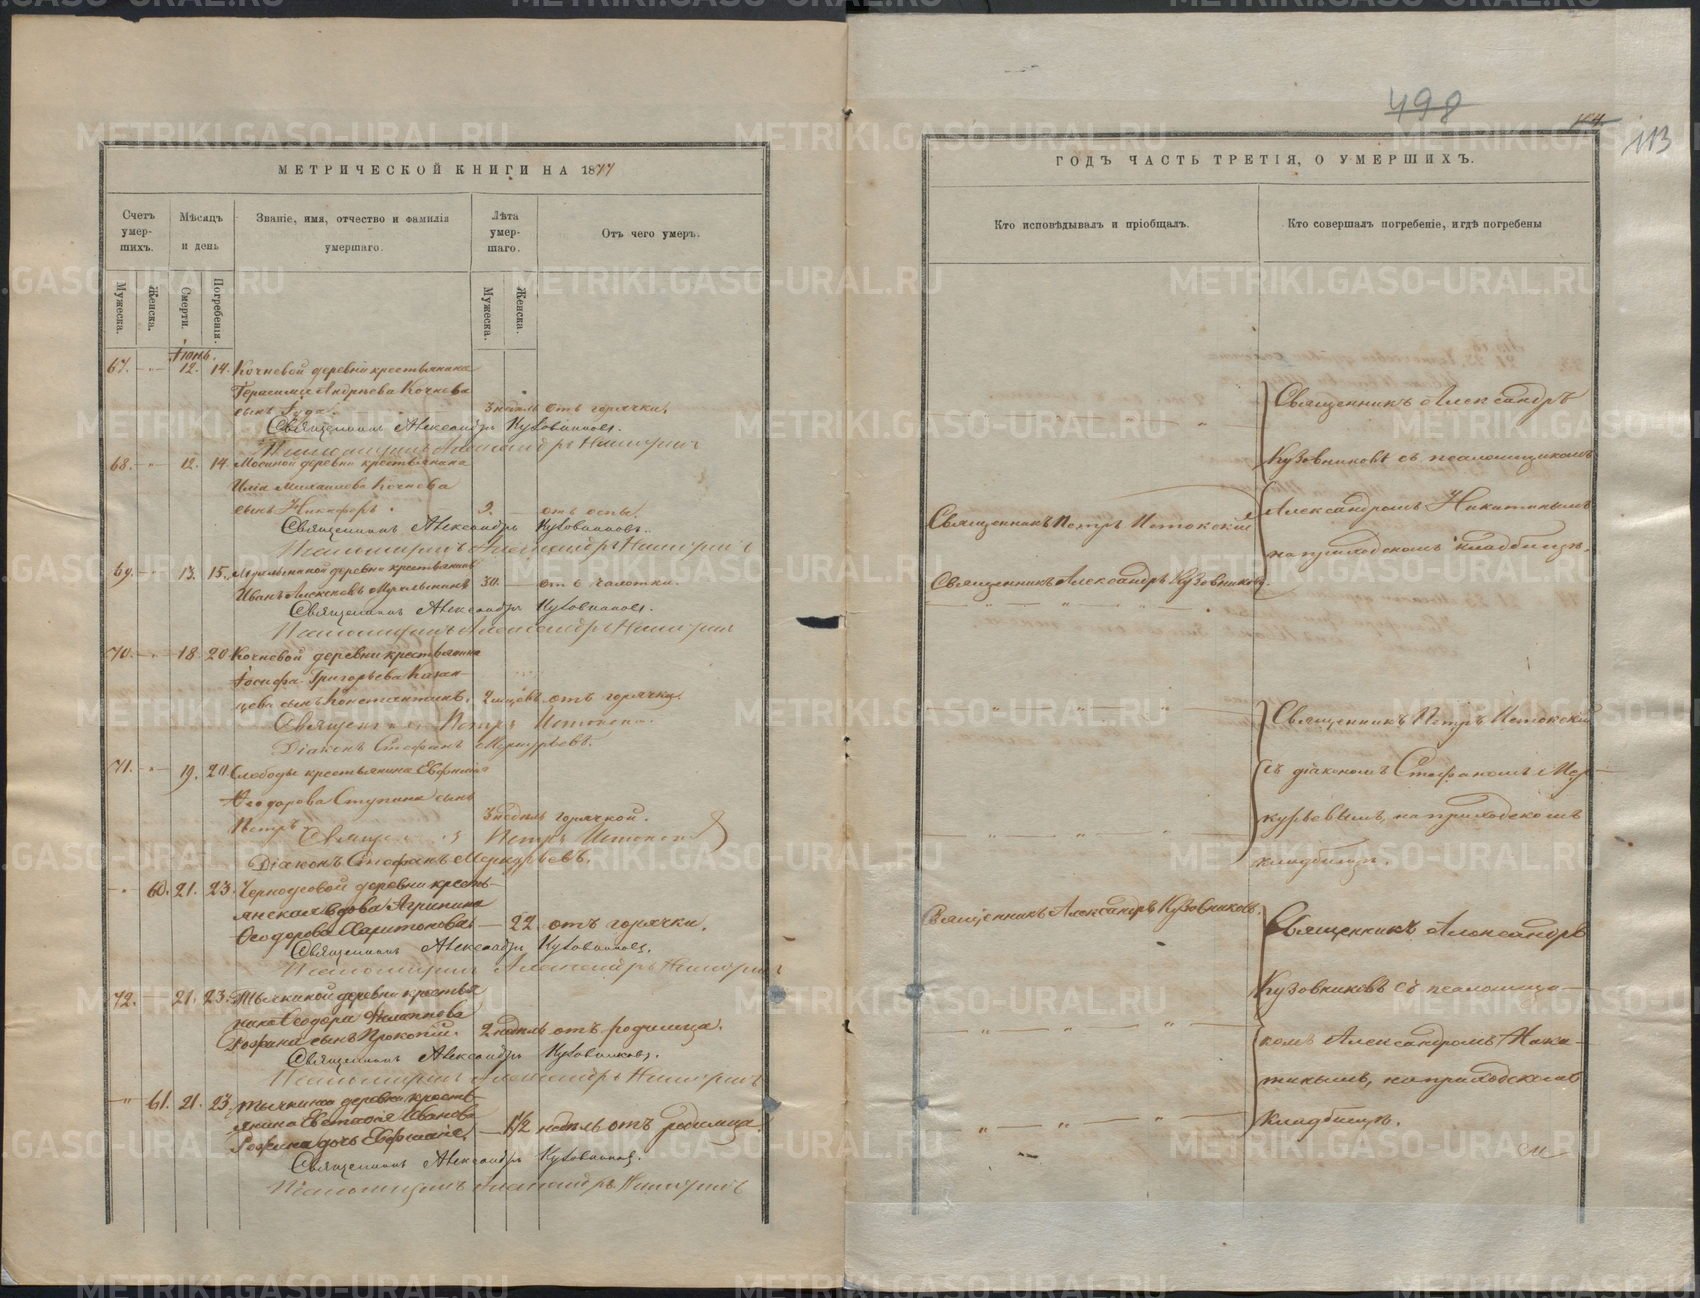 МЕТРИЧЕСКОЙ КНИГИ НА 1877
Счетъ умер- шихъ.
Мѣсяцъ и день
Званіе, имя, отчество и фамилія умершаго.
Лѣта умер- шаго.
Отъ чего умеръ.
Мужеска.
Женска.
Смерти.
Погребенія.
Мужеска.
Женска.
Іюнь.
67. 12. 14. Кочневой деревни крестьянина
Герасима Андреева Кочнева
сынъ Іуда. 3 недѣль отъ горячки.
Священникъ Александръ Кузовниковъ.
Псаломщикъ Александръ Никитинъ
68. 12. 14. деревни крестьянина
Иліи Михаилова Кочнева
сынъ Никифоръ. 2. отъ оспы.
Священникъ Александръ Кузовниковъ.
Псаломщикъ Александръ Никитинъ
69. 13. 15. деревни крестьянинъ
Иванъ 30. отъ чахотки.
Священникъ Александръ Кузовниковъ.
Псаломщикъ Александръ Никитинъ
70. 18. 20. Кочневой деревни крестьянина
Іосифа Григорьева Казан-
цева сынъ Константинъ. 2 отъ горячки.
Священникъ Петръ Истокскій.
Діаконъ Стефанъ Меркурьевъ.
71. 19. 20. Слободы крестьянина
Ѳеодорова Ступина сынъ
Петръ 3 недѣль горячкой.
Священникъ Петръ Истокскій
Діаконъ Стефанъ Меркурьевъ.
60. 21. 23. деревни кресть-
янская вдова Агрипина
Ѳеодорова Харитонова 22. отъ горячки.
Священникъ Александръ Кузовниковъ.
Псаломщикъ Александръ Никитинъ
72. 21. 23. деревни крестья
нина Ѳеодора Филиппова
сынъ Прокопій. 2 недѣль отъ родимца.
Священникъ Александръ Кузовниковъ.
Псаломщикъ Александръ Никитинъ
61. 21. 23. деревни кресть-
янина Евстафія Иванова
дочь Евфимія. 1½ недѣль отъ родимца.
Священникъ Александръ Кузовниковъ.
Псаломщикъ Александръ Никитинъ
498
113
ГОДЪ ЧАСТЬ ТРЕТІЯ, О УМЕРШИХЪ.
Кто исповѣдывалъ и пріобщалъ.
Кто совершалъ погребеніе, и гдѣ погребены
Священникъ Александръ
Кузовниковъ съ псаломщикомъ
Александромъ Никитинымъ
на приходскомъ кладбищѣ.
Священникъ Петръ Истокскій
Священникъ Александръ Кузовниковъ.
Священникъ Петръ Истокскій
съ діакономъ Стефаномъ Мер-
курьевымъ, на приходскомъ
кладбищѣ.
Священникъ Александръ Кузовниковъ.
Священникъ Александръ
Кузовниковъ съ псаломщи-
комъ Александромъ Ники-
тинымъ, на приходскомъ
кладбищѣ.
METRIKI.GASO-URAL.RU